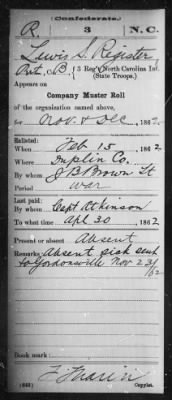 (Confederate.)
R. 3 N.C.
Lewis S. Register
Pvt, B, 3 Reg't North Carolina Inf.
(State Troops.)
Appears on
Company Muster Roll
of the organization named above,
for Nov. & Dec, 1862
Enlisted:
When Feb 15 1862
Where Duplin Co.
By whom J B Brown Lt
Period war
Last paid:
By whom Capt Atkinson
To what time Apl 30 1862
Present or absent Absent
Remarks: Absent sick sent
to Gordonsville Nov 23/
/62
Book mark:
(642) Copyist.